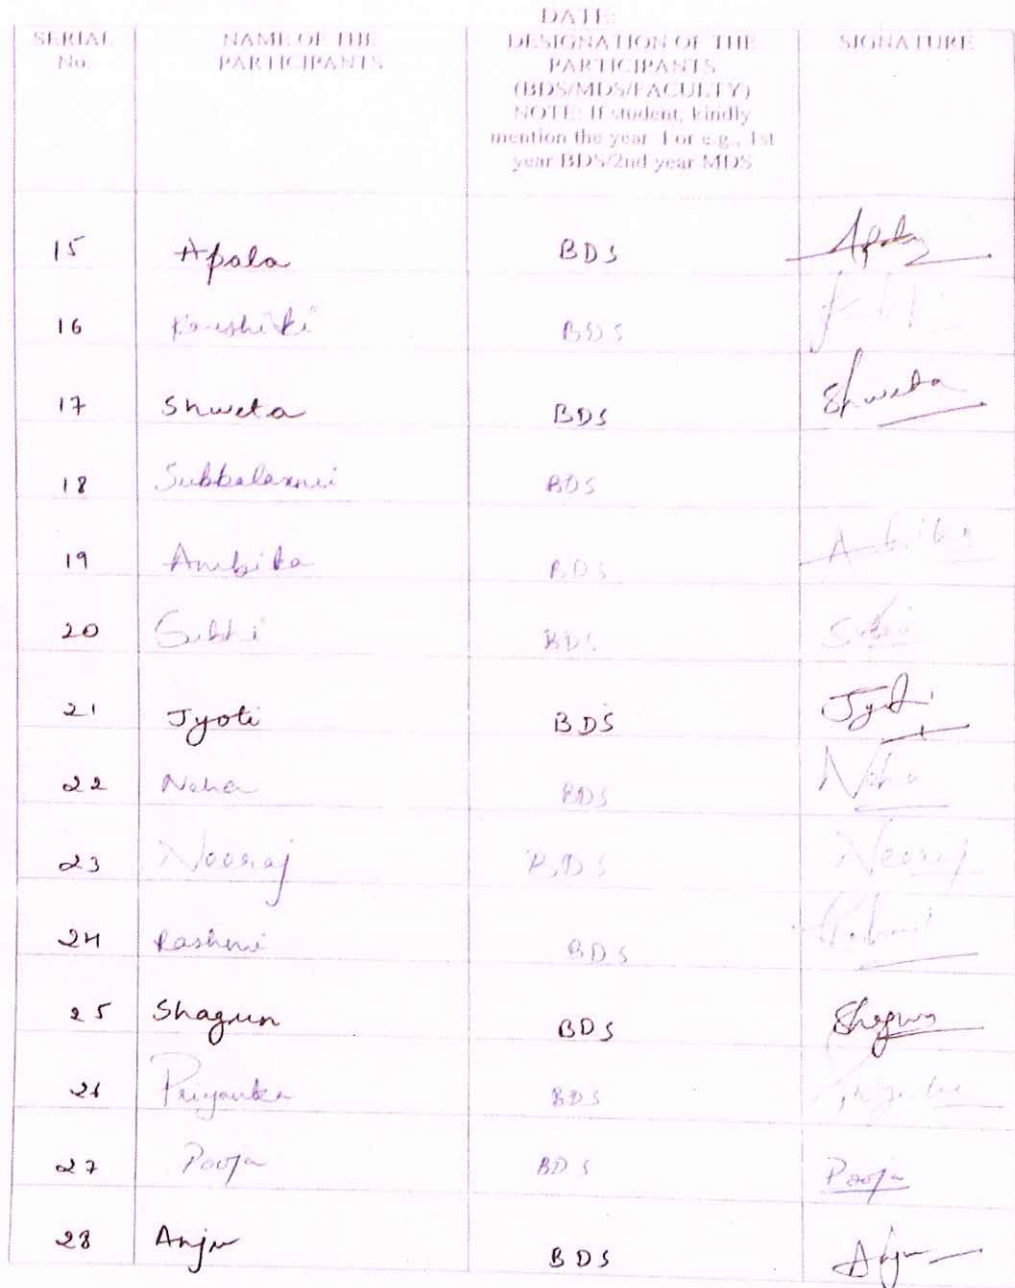 DATE:
SERIAL No. NAME OF THE PARTICIPANTS DESIGNATION OF THE PARTICIPANTS (BDS/MDS/FACULTY) NOTE: If student, kindly mention the year. For e.g., 1st year BDS/2nd year MDS SIGNATURE
15 Apala BDS Apala
16 Kaushiki BDS
17 Shweta BDS Shweta
18 Subbalaxmi BDS
19 Ambika BDS Ambika
20 BDS
21 Jyoti BDS Jyoti
22 Neha BDS Neha
23 Neeraj BDS Neeraj
24 Rashmi BDS
25 Shagun BDS Shagun
26 Priyanka BDS Priyanka
27 Pooja BDS Pooja
28 Anju BDS Anju